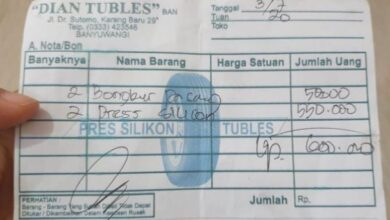 "DIAN TUBLES" BAN
Jl. Dr. Sutomo, Karang Baru 29
Telp. (0333) 423546
BANYUWANGI
Tanggal 3/7
Tuan 20
Toko
A. Nota/Bon
Banyaknya Nama Barang Harga Satuan Jumlah Uang
2 50000
2 Press Silicon 550.000
PRES SILIKON TUBLES
Rp. 600.000
PERHATIAN :
Barang - Barang Yang Sudah Dibeli Tidak Dapat
Ditukar / Dikembalikan Dalam Keadaan Rusak
Jumlah Rp.